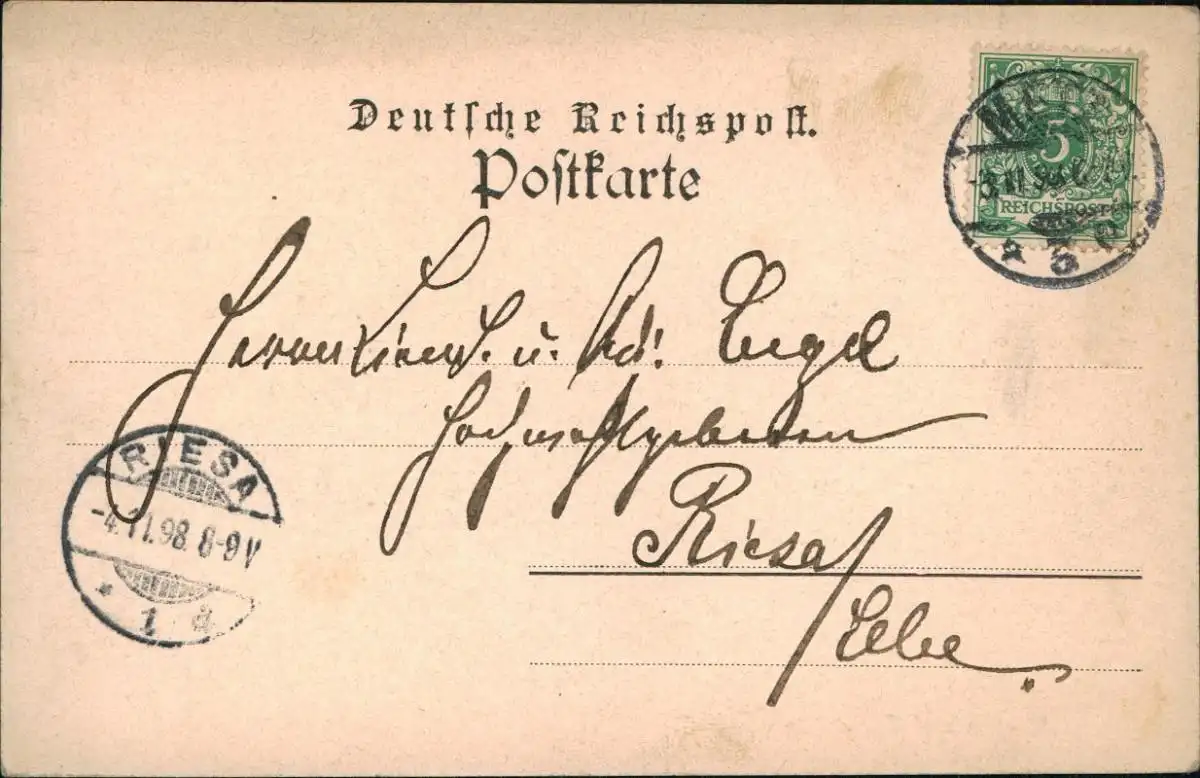 Deutsche Reichspost.
Postkarte
5
REICHSPOST
-3.11.98
Herren Lieut. u. Adj. Engel
Hochwohlgeboren
Riesa/
Elbe
RIESA
-4.11.98. 8-9V
* 1 d